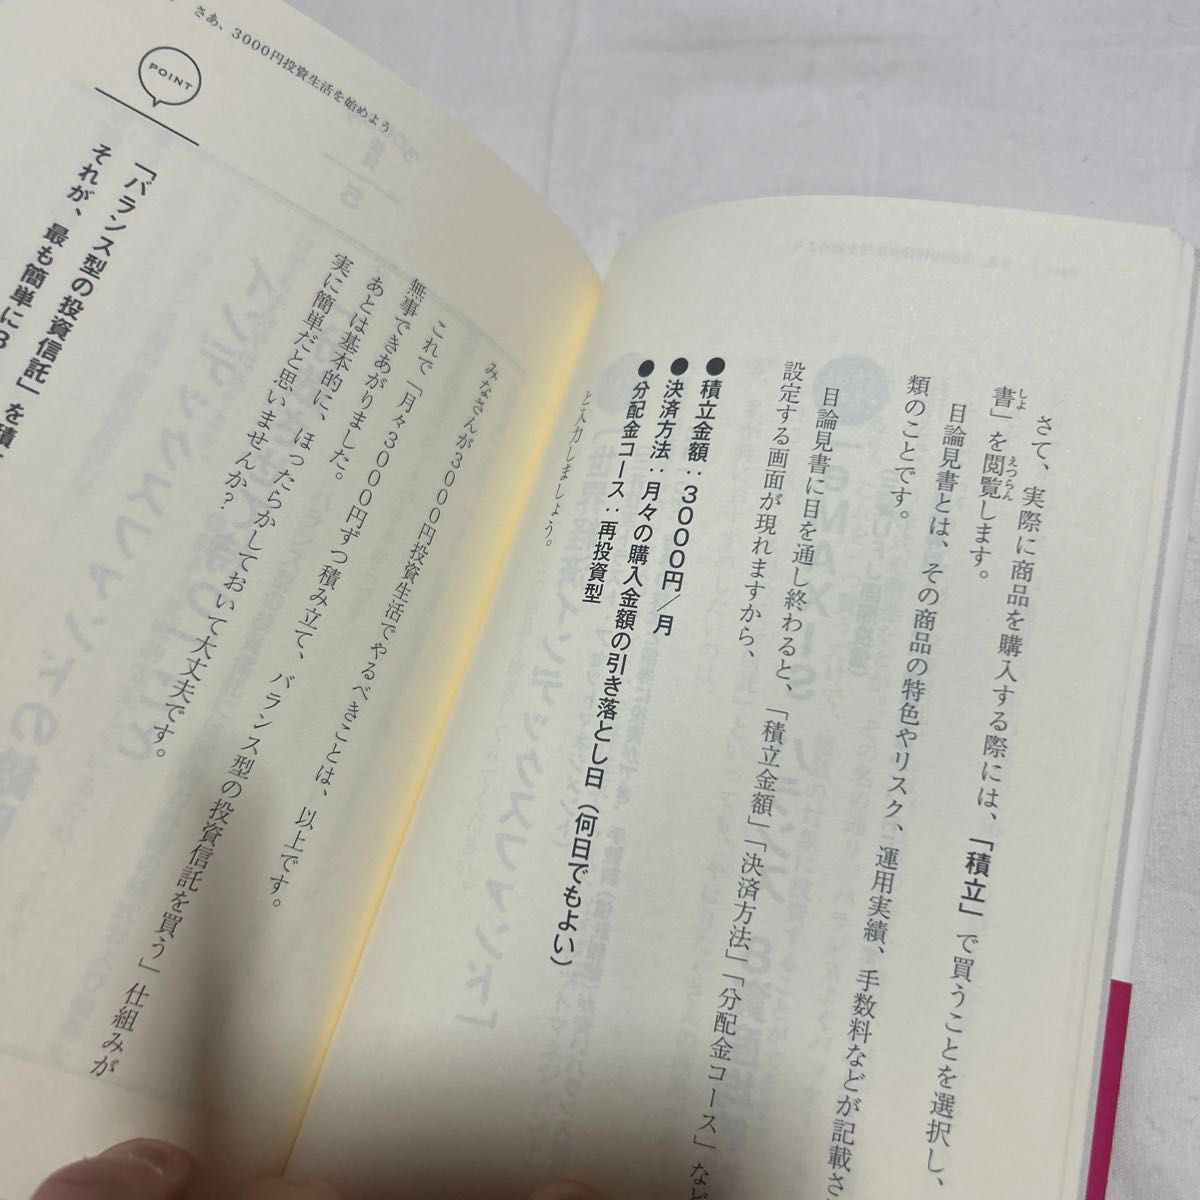 さて、実際に商品を購入する際には、「積立」で買うことを選択し、
書」を閲覧します。
しょ
えつらん
目論見書とは、その商品の特色やリスク、運用実績、手数料などが記載さ
類のことです。
目論見書に目を通し終わると、「積立金額」「決済方法」「分配金コース」など
設定する画面が現れますから、
●積立金額：3000円／月
●決済方法：月々の購入金額の引き落とし日（何日でもよい）
●分配金コース：再投資型
と入力しましょう。
さあ、3000円投資生活を始めよう
みなさんが3000円投資生活でやるべきことは、以上です。
これで「月々3000円ずつ積み立て、バランス型の投資信託を買う」仕組みが
無事できあがりました。
あとは基本的に、ほったらかしておいて大丈夫です。
実に簡単だと思いませんか？
POINT
「バランス型の投資信託」を積
それが、最も簡単に3